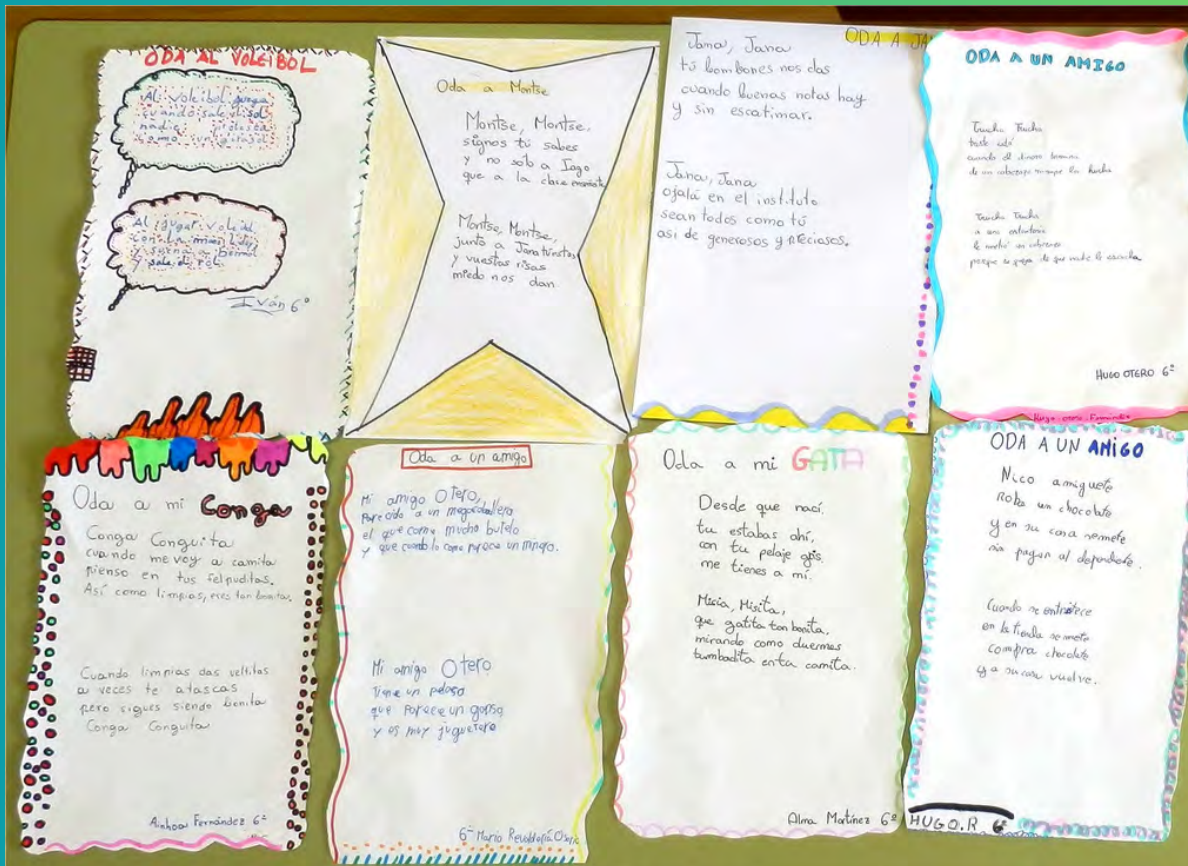 ODA AL VOLEIBOL
Al voleibol juega
cuando sale el sol
nadie protesta
como un girasol
Al jugar voleibol
con la mini
suena a bemol
y sale el
Iván 6º
Oda a Montse
Montse, Montse,
signos tú sabes
y no sólo a Iago
que a la clase
Montse, Montse,
junto a Jana
y vuestras risas
miedo nos dan
ODA A JAN
Jana, Jana
tú bombones nos das
cuando buenas notas hay
y sin escatimar.
Jana, Jana
ojalá en el instituto
sean todos como tú
así de generosos y preciosos.
ODA A UN AMIGO
Trucha Trucha
cuando el
de un cabezazo rompe la hucha
Trucha Trucha
a una
le
porque se queja de que nadie le escucha
HUGO OTERO 6º
Hugo Otero Fernández
Oda a mi Conga
Conga Conguita
cuando me voy a camita
pienso en tus felpuditas.
Así como limpias, eres tan bonita.
Cuando limpias das veltitas
a veces te atascas
pero sigues siendo bonita
Conga Conguita
Ainhoa Fernández 6º
Oda a un amigo
Mi amigo Otero,
parecido a un
el que come mucho butelo
y que cuando lo come parece un minero.
Mi amigo Otero
tiene un
que parece un
y es muy juguetero
6º Mario
Oda a mi GATA
Desde que nací,
tu estabas ahí,
con tu pelaje gris
me tienes a mí.
Misia, Misita,
que gatita tan bonita,
mirando como duermes
tumbadita en tu camita.
Alma Martínez 6º
ODA A UN AMIGO
Nico amiguete
Roba un chocolate
y en su casa se mete
sin pagar al dependiente.
Cuando se entristece
en la tienda se mete
compra chocolate
y a su casa vuelve.
HUGO.R 6º